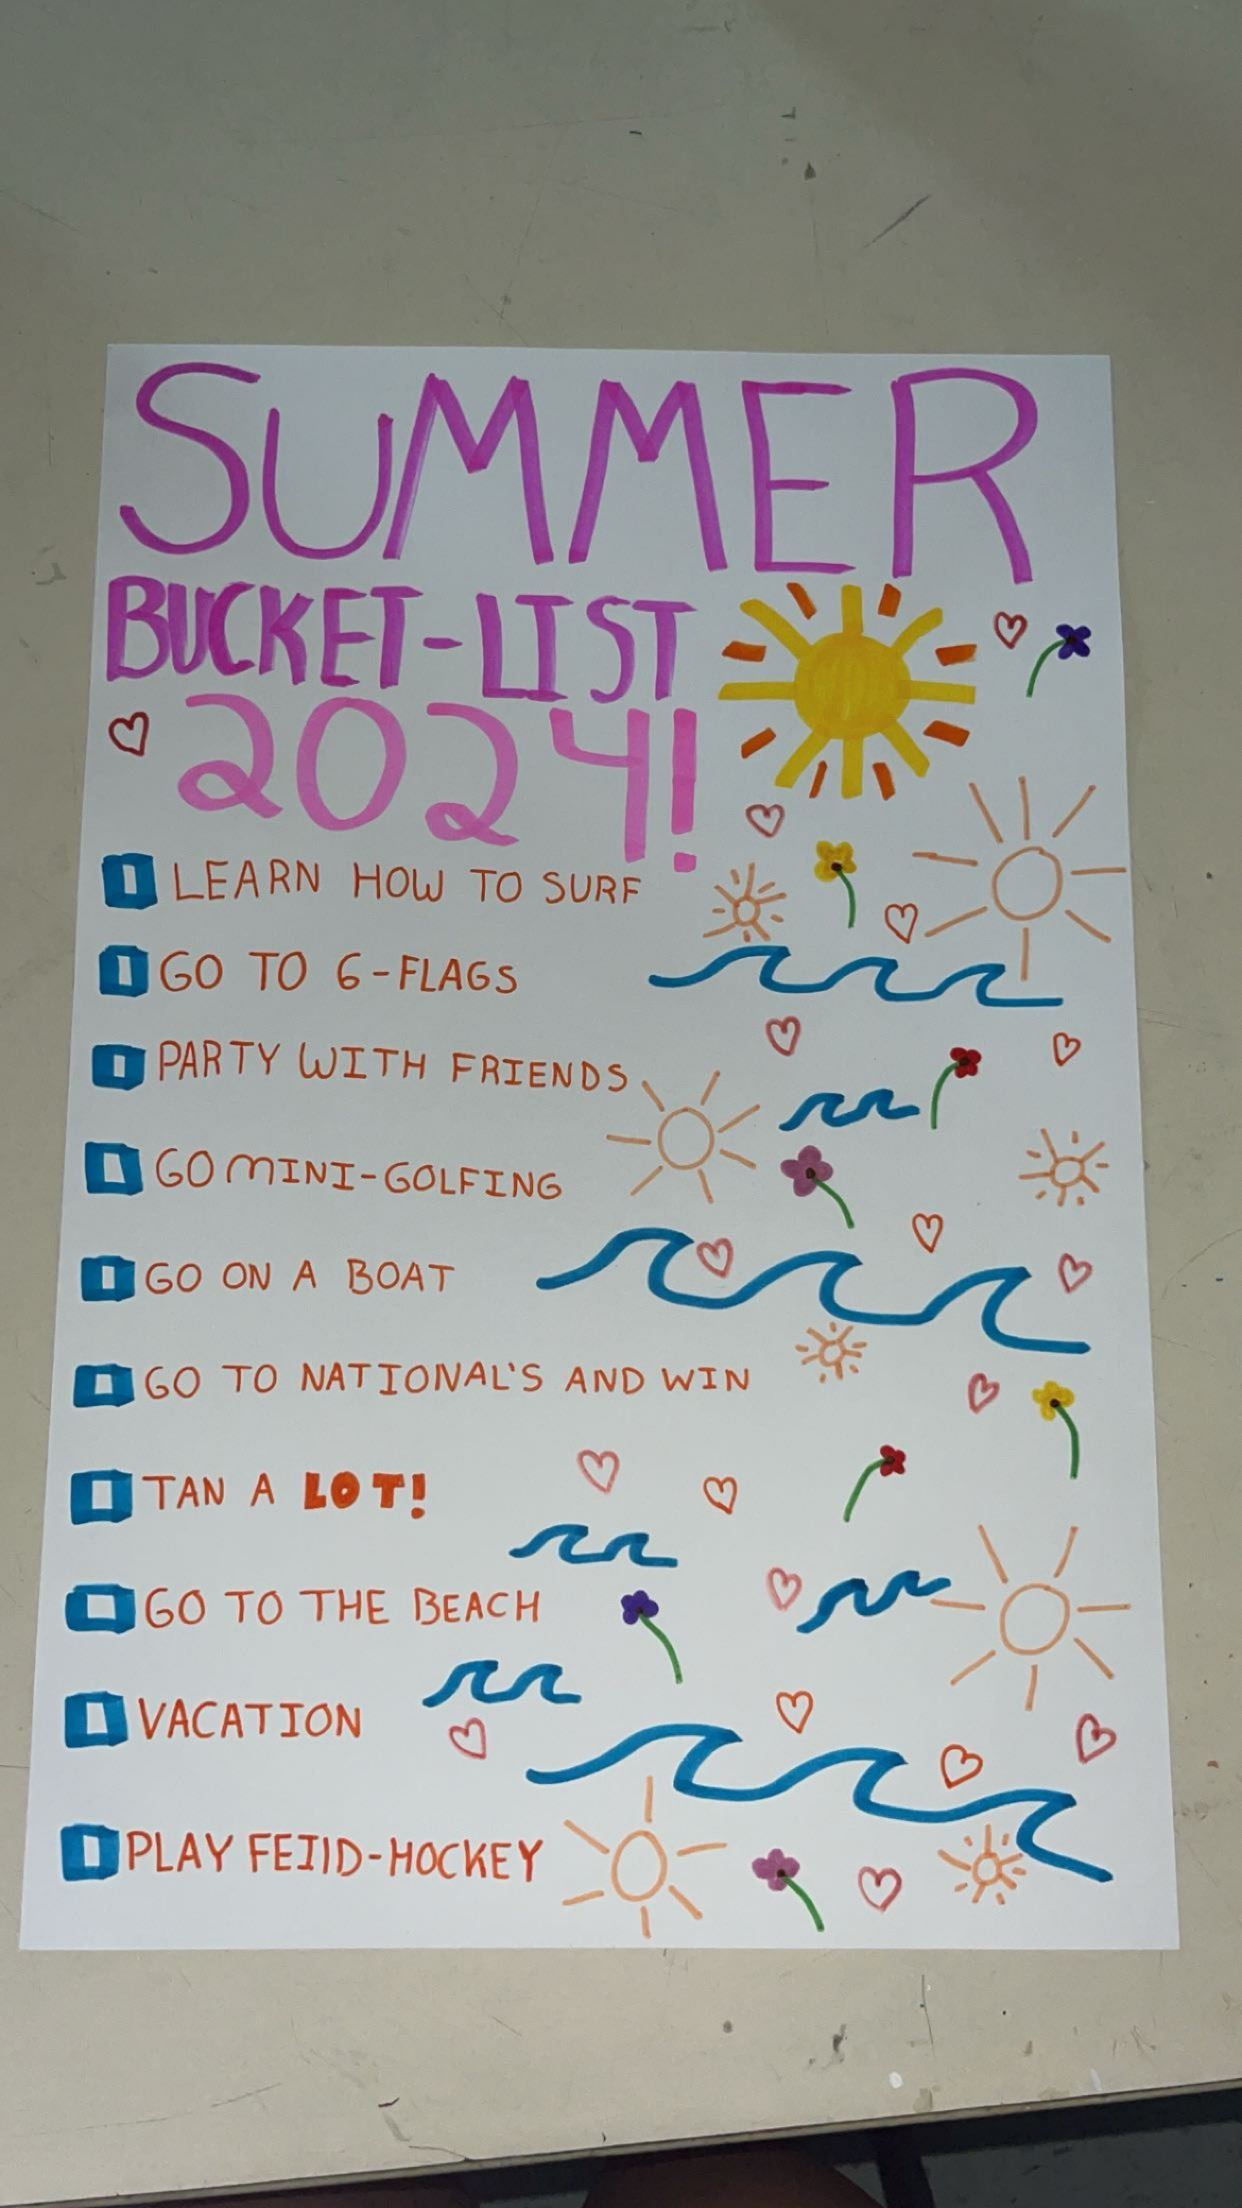 SUMMER
BUCKET-LIST
2024!
LEARN HOW TO SURF
GO TO 6-FLAGS
PARTY WITH FRIENDS
GO MINI-GOLFING
GO ON A BOAT
GO TO NATIONAL'S AND WIN
TAN A LOT!
GO TO THE BEACH
VACATION
PLAY FEIID-HOCKEY